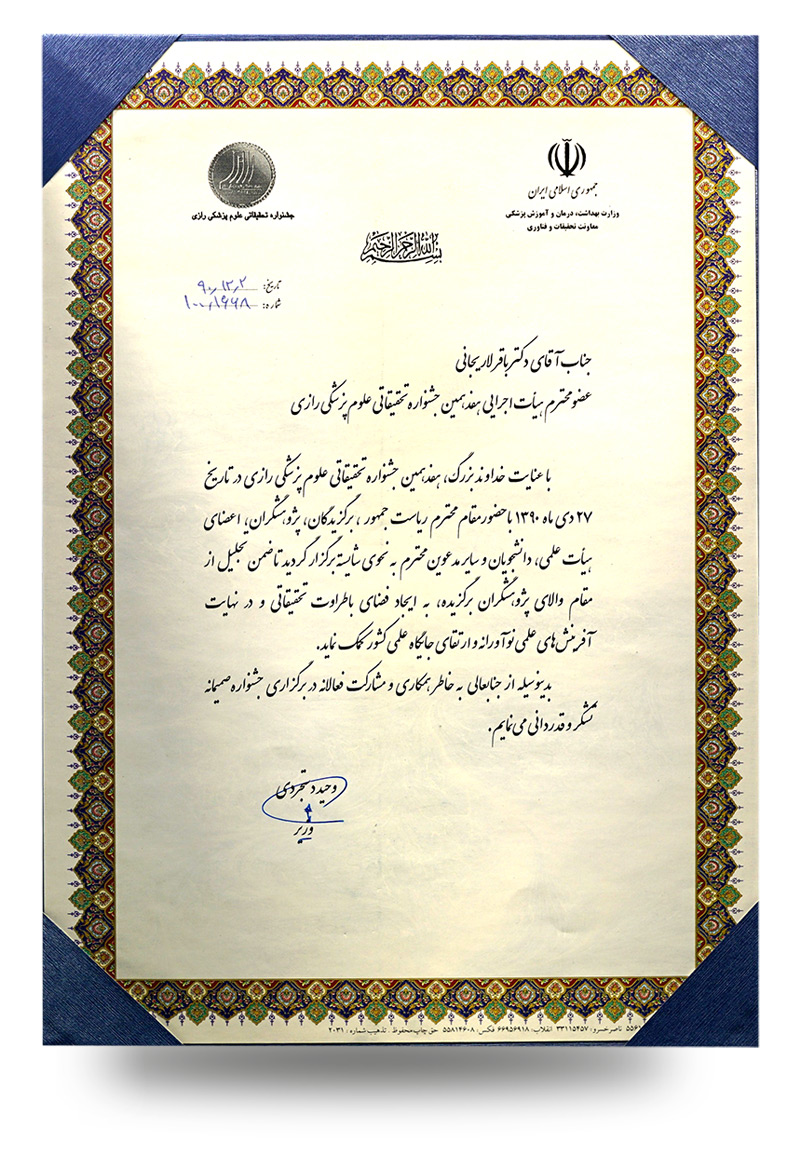 جمهوری اسلامی ایران
وزارت بهداشت، درمان و آموزش پزشکی
معاونت تحقیقات و فناوری
جشنواره تحقیقاتی علوم پزشکی رازی
بسم الله الرحمن الرحیم
تاریخ: ۹۰،۱۲،۲
شماره: ۱۰۰،۱۶۶۸
جناب آقای دکتر باقر لاریجانی
عضو محترم هیأت اجرایی هفدهمین جشنواره تحقیقاتی علوم پزشکی رازی
با عنایت خداوند بزرگ، هفدهمین جشنواره تحقیقاتی علوم پزشکی رازی در تاریخ
۲۷ دی ماه ۱۳۹۰ با حضور مقام محترم ریاست جمهور، برگزیدگان، پژوهشگران، اعضای
هیأت علمی، دانشجویان و سایر مدعوین محترم به نحوی شایسته برگزار گردید تا ضمن تجلیل از
مقام والای پژوهشگران برگزیده، به ایجاد فضای باطراوت تحقیقاتی و در نهایت
آفرینش‌های علمی نوآورانه و ارتقای جایگاه علمی کشور کمک نماید.
بدینوسیله از جنابعالی به خاطر همکاری و مشارکت فعالانه در برگزاری جشنواره صمیمانه
تشکر و قدردانی می نمایم.
وحید دستجردی
وزیر
ناصر خسرو: ۳۳۱۱۵۴۵۷ انقلاب: ۶۶۹۵۶۹۱۸ فکس: ۵۵۸۱۴۶۰۸ حق چاپ محفوظ . تذهیب شماره: ۲۰۳۱